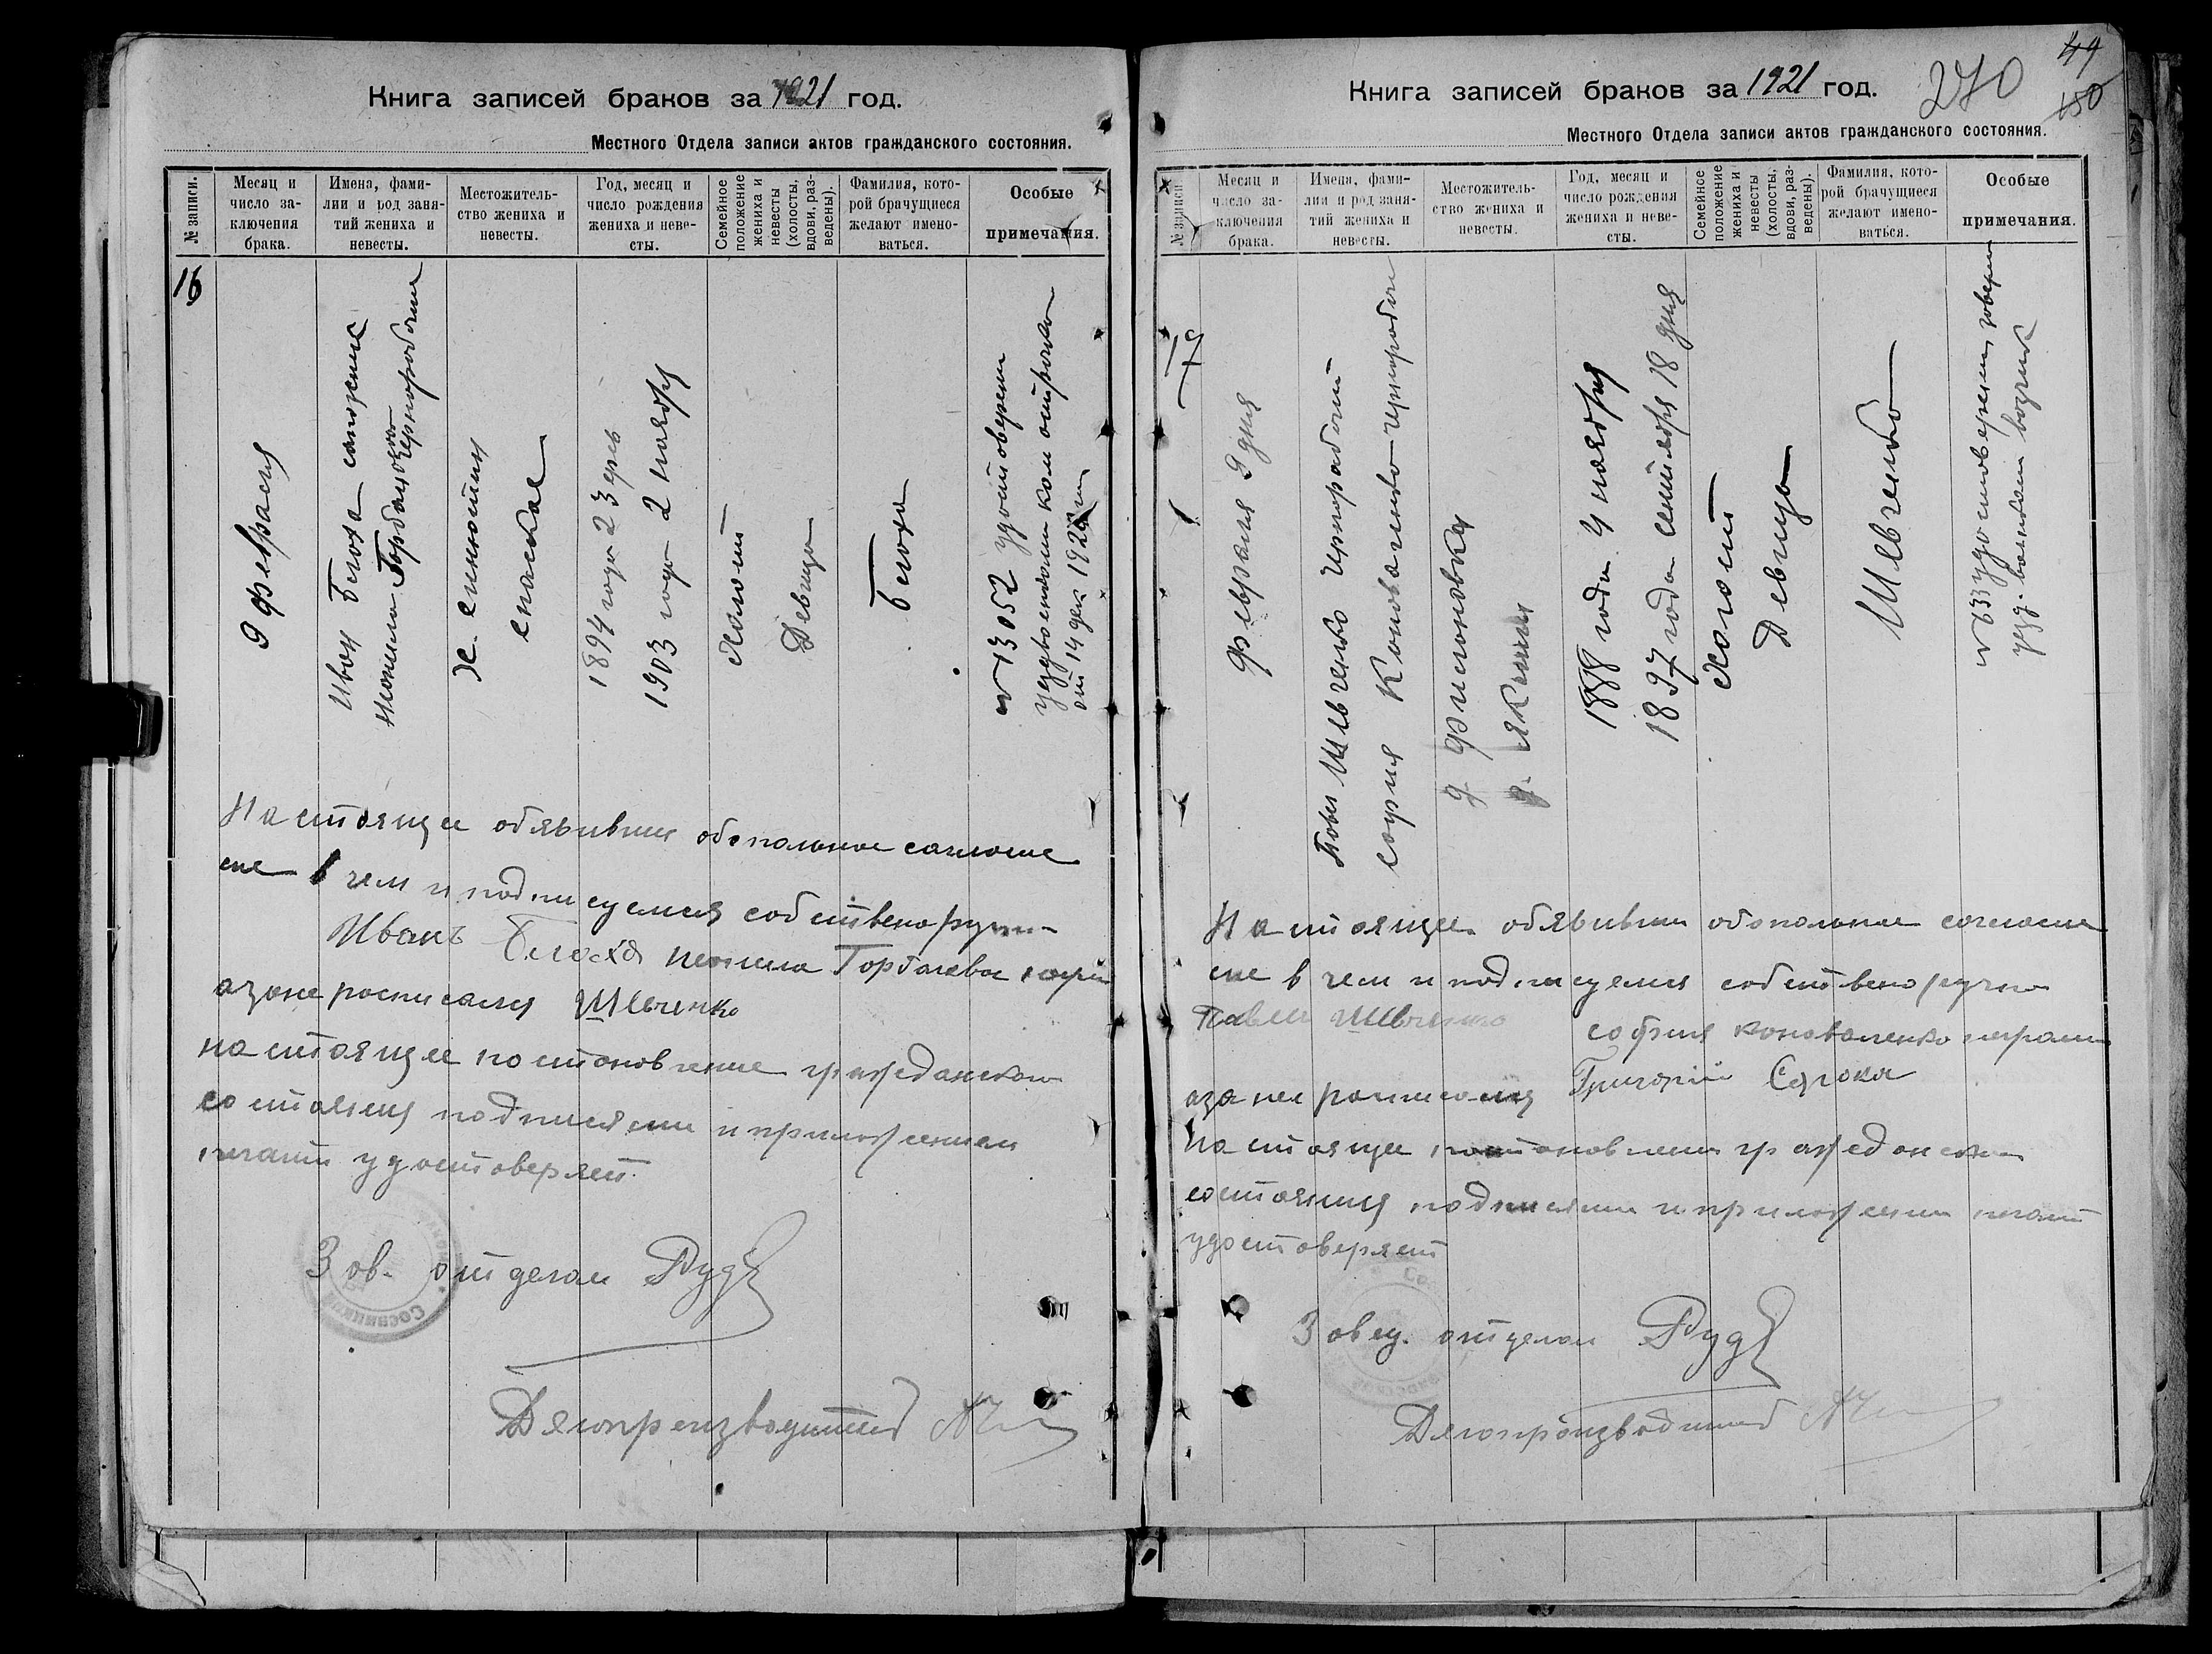 Книга записей браков за 1921 год.
Местного Отдела записи актов гражданского состояния.
№ записи.
Месяц и число заключения брака.
Имена, фамилии и род занятий жениха и невесты.
Местожительство жениха и невесты.
Год, месяц и число рождения жениха и невесты.
Семейное положение жениха и невесты (холосты, вдовы, разведены).
Фамилия, которой брачущиеся желают именоваться.
Особые примечания.
16
9 февраля
Иван Блоха
Горбач
спаское
1894 года 23
1903 года 2 ноября
Холост
Девица
Блоха
№ 13052 удостоверен
от 14 дек 192
Настояще обявивши обопольное согласие
ние в чем и подписуемся собственоручно
Иванъ Блоха
азане росписался Шевченко
настоящее постановление гражданского
состояния подписями и приложением
печати удостоверяет.
Зав. отделом Руд
Делопроизводитель
Книга записей браков за 1921 год.
270
49
150
Местного Отдела записи актов гражданского состояния.
№ записи
Месяц и число заключения брака.
Имена, фамилии и род занятий жениха и невесты.
Местожительство жениха и невесты.
Год, месяц и число рождения жениха и невесты.
Семейное положение жениха и невесты (холосты, вдовы, разведены).
Фамилия, которой брачущиеся желают именоваться.
Особые примечания.
17
февраля 9 дня
Шевченко
софия Коноваленко
д. Филоновка
д. Якличи
1888 года 4 ноября
1897 года сентября 18 дня
Холост
Девица
Шевченко
№ 633 удостоверение
Настояще обявивши обопольное согласие
ние в чем и подписуемся собственоручно
Павел Шевченко софия коноваленко
азанее росписался Григорій Сорока
настояще постановление гражданского
состояния подписями и приложении печати
удостоверяет
Завед. отделом Руд
Делопроизводитель